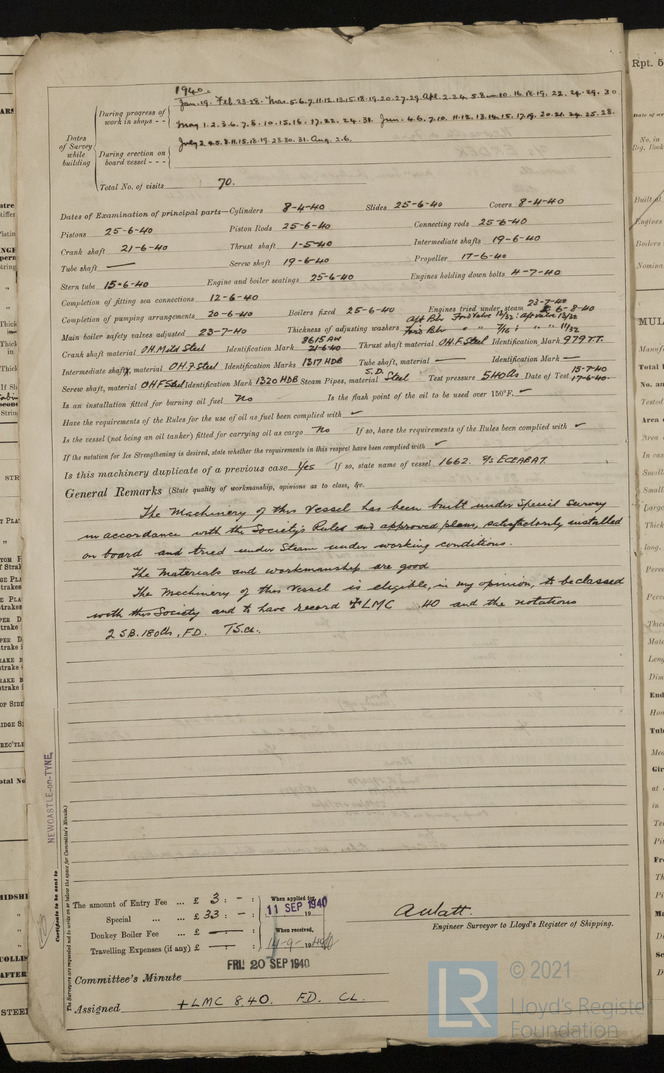 1940.
Dates of Survey while building
During progress of work in shops - -
Jan. 19. Feb. 23.28. Mar. 5.6.7.11.12.13.15.18.19.20.27.29 Apr. 2.24.5.8.10.16.18.19.22.24.29.30
May 1.2.3.6.7.8.10.15.16.17.22.24.31. Jun. 4.6.7.10.11.12.13.14.15.17.19.20.21.24.25.28.
During erection on board vessel - - -
July 2.4.5.8.11.15.18.19.23.30.31. Aug. 2.6.
Total No. of visits 70.
Dates of Examination of principal parts—Cylinders 8-4-40 Slides 25-6-40 Covers 8-4-40
Pistons 25-6-40 Piston Rods 25-6-40 Connecting rods 25-6-40
Crank shaft 21-6-40 Thrust shaft 1-5-40 Intermediate shafts 19-6-40
Tube shaft — Screw shaft 19-6-40 Propeller 17-6-40
Stern tube 15-6-40 Engine and boiler seatings 25-6-40 Engines holding down bolts 4-7-40
Completion of fitting sea connections 12-6-40
Completion of pumping arrangements 20-6-40 Boilers fixed 25-6-40 Engines tried under steam 23-7-40 & 6-8-40
Main boiler safety valves adjusted 23-7-40 Thickness of adjusting washers
Crank shaft material I.H. Mild Steel Identification Mark 8615 AW 21-6-40 Thrust shaft material O.H.F. Steel Identification Mark 979 TT.
Intermediate shafts, material O.H.F Steel Identification Marks 1317 HDB Tube shaft, material — Identification Mark —
Screw shaft, material OHF Steel Identification Mark 1320 HDB Steam Pipes, material S.D. Steel Test pressure 540 lbs Date of Test 15-7-40 17-6-40
Is an installation fitted for burning oil fuel No Is the flash point of the oil to be used over 150°F. ✓
Have the requirements of the Rules for the use of oil as fuel been complied with ✓
Is the vessel (not being an oil tanker) fitted for carrying oil as cargo No If so, have the requirements of the Rules been complied with ✓
If the notation for Ice Strengthening is desired, state whether the requirements in this respect have been complied with ✓
Is this machinery duplicate of a previous case Yes If so, state name of vessel 1662. S/S ECEABAT.
General Remarks (State quality of workmanship, opinions as to class, &c.
The Machinery of this Vessel has been built under Special Survey
in accordance with the Society's Rules and approved plans, satisfactorily installed
on board and tried under Steam under working conditions.
The Materials and workmanship are good
The Machinery of this Vessel is eligible, in my opinion, to be classed
with this Society and to have record +LMC .40 and the notations
2 S.B. 180lbs, F.D. T.S.CL.
NEWCASTLE-on-TYNE
Certificate to be sent to
The amount of Entry Fee ... £ 3 : - :
Special ... ... £ 33 : - :
Donkey Boiler Fee ... £ — :
Travelling Expenses (if any) £ — :
When applied for,
11 SEP 1940
When received,
A Watt.
Engineer Surveyor to Lloyd's Register of Shipping.
FRI. 20 SEP 1940
Committee's Minute
Assigned +LMC 8.40. F.D. CL.
Rpt. 5
LR
© 2021
Lloyd's Register
Foundation